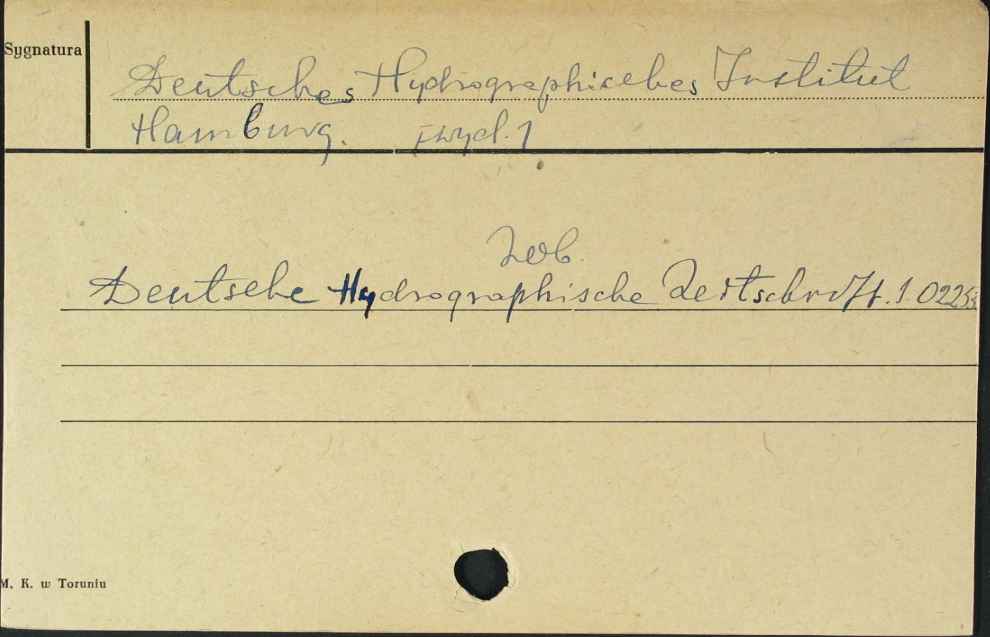 Sygnatura
Deutsches Hydrographisches Institut
Hamburg. [wyd.]
Zob.
Deutsche Hydrographische Zeitschrift. 1. 0225
M. K. w Toruniu